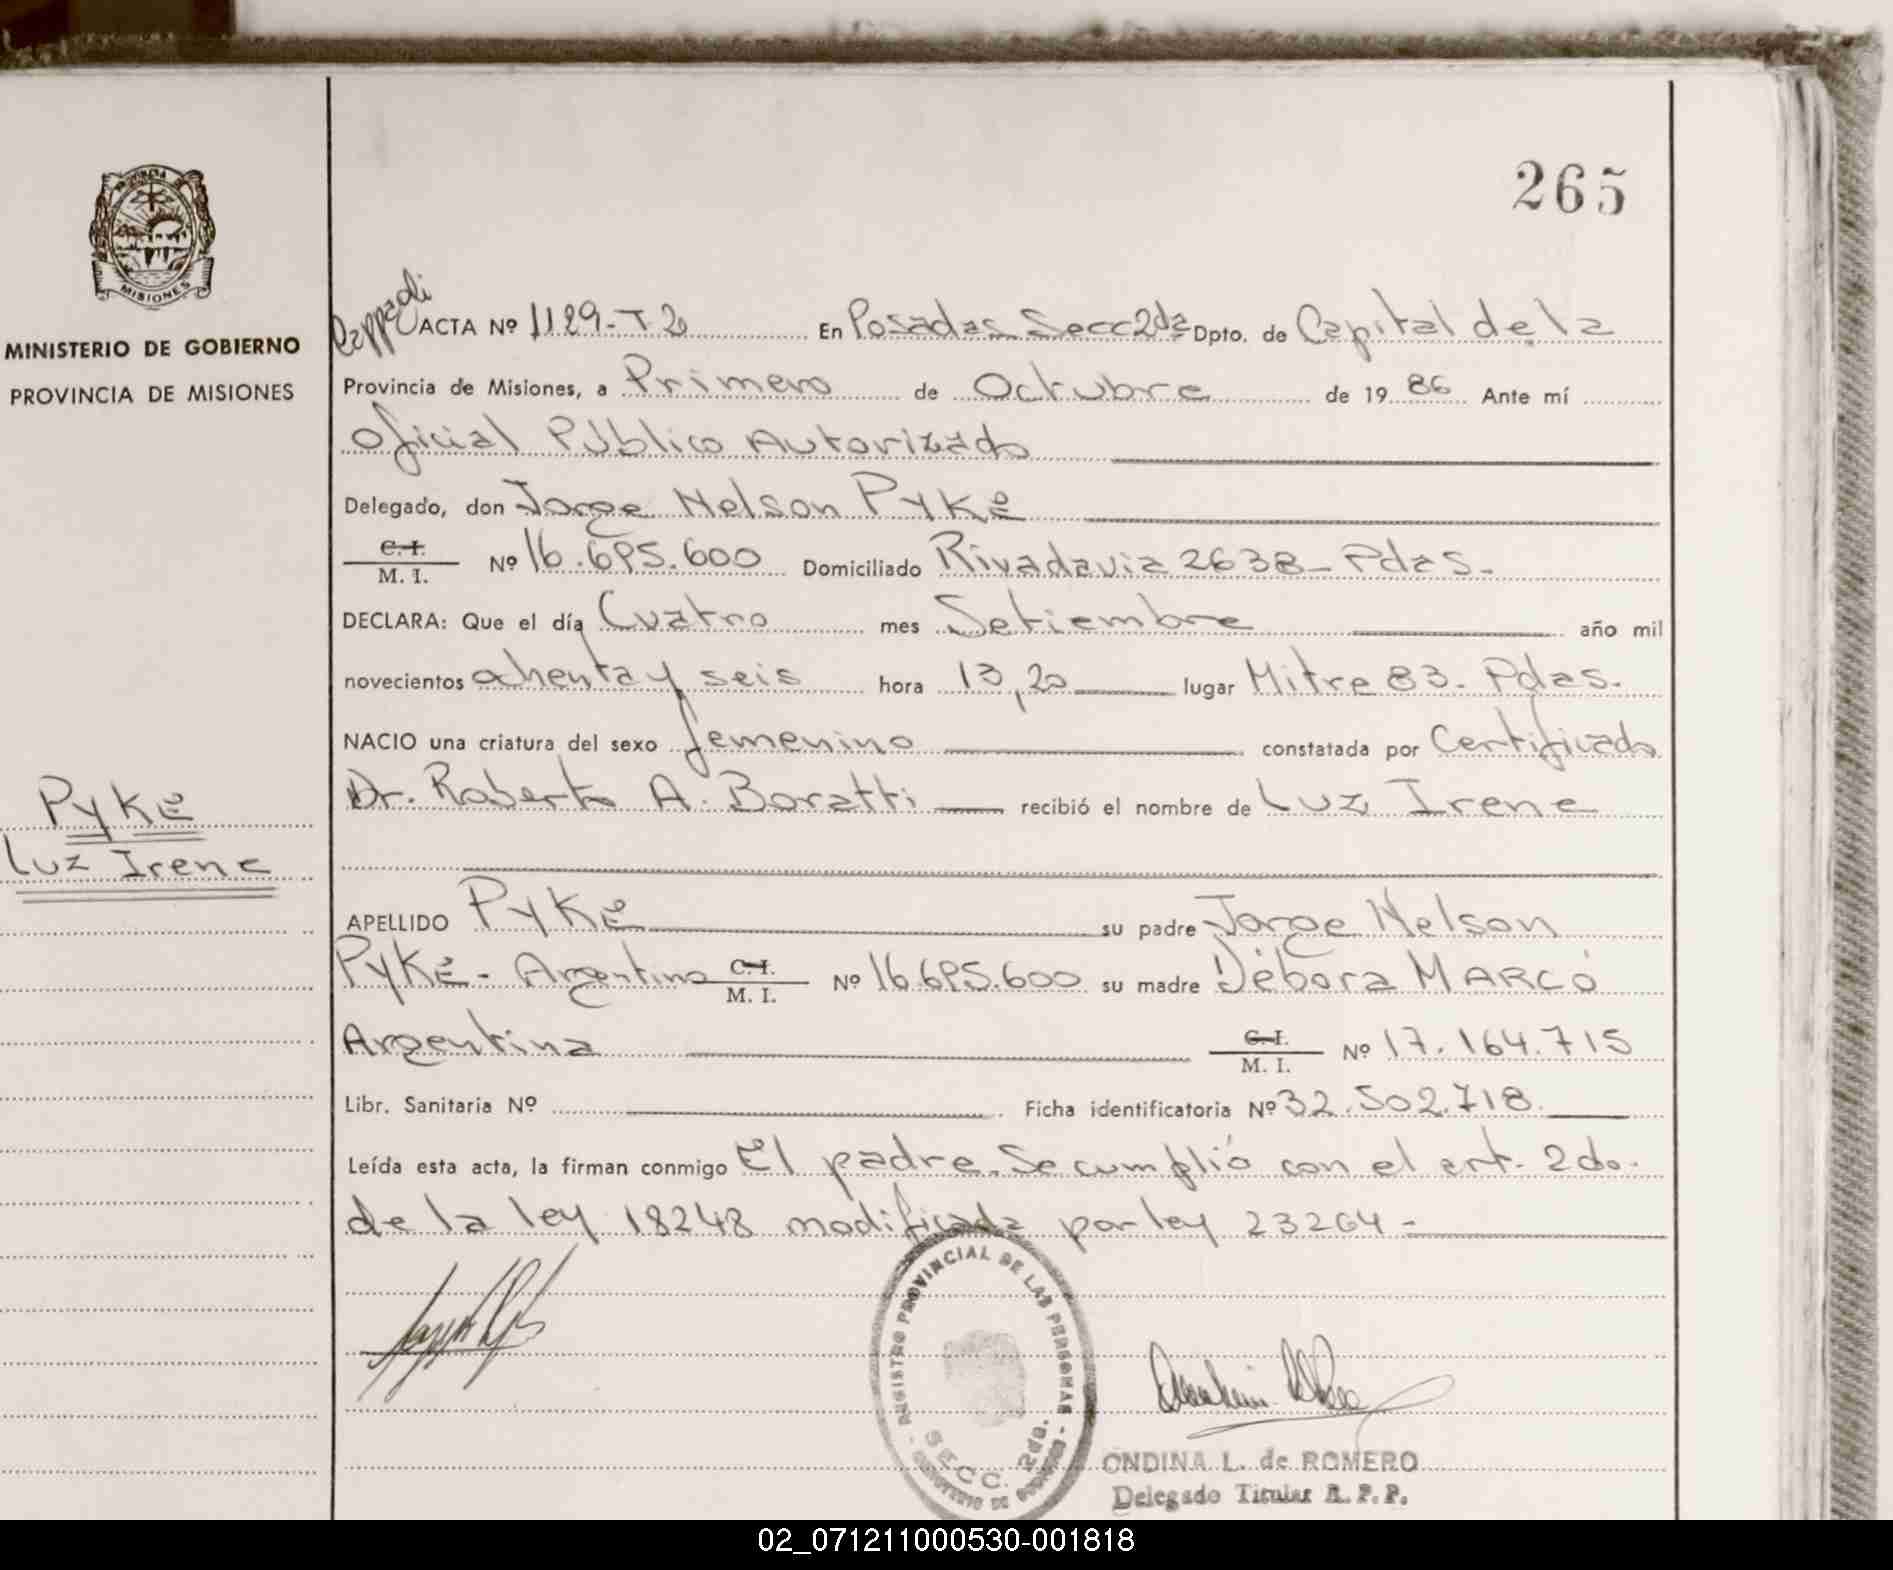 265
PROVINCIA DE
MISIONES
MINISTERIO DE GOBIERNO
PROVINCIA DE MISIONES
Pyke
Luz Irene
ACTA Nº 1129-T2o En Posadas Secc 2da Dpto. de Capital de la
Provincia de Misiones, a Primero de Octubre de 1986 Ante mí
Oficial Público Autorizado
Delegado, don Jorge Nelson Pyke
C. I.
M. I. Nº 16.695.600 Domiciliado Rivadavia 2638 - Pdas.
DECLARA: Que el día Cuatro mes Setiembre año mil
novecientos ochenta y seis hora 13,20 lugar Mitre 83 - Pdas.
NACIO una criatura del sexo femenino constatada por Certificado
Dr. Roberto A. Boratti recibió el nombre de Luz Irene
APELLIDO Pyke su padre Jorge Nelson
Pyke - Argentino C. I. M. I. Nº 16.695.600 su madre Débora MARCÓ
Argentina C. I. M. I. Nº 17.164.715
Libr. Sanitaria Nº Ficha identificatoria Nº 32.502.718.
Leída esta acta, la firman conmigo El padre. Se cumplió con el art. 2do.
de la ley 18248 modificada por ley 23264 -
REGISTRO PROVINCIAL DE LAS PERSONAS
SECC. 2da.
ONDINA L. de ROMERO
Delegado Titular R. P. P.
02_071211000530-001818